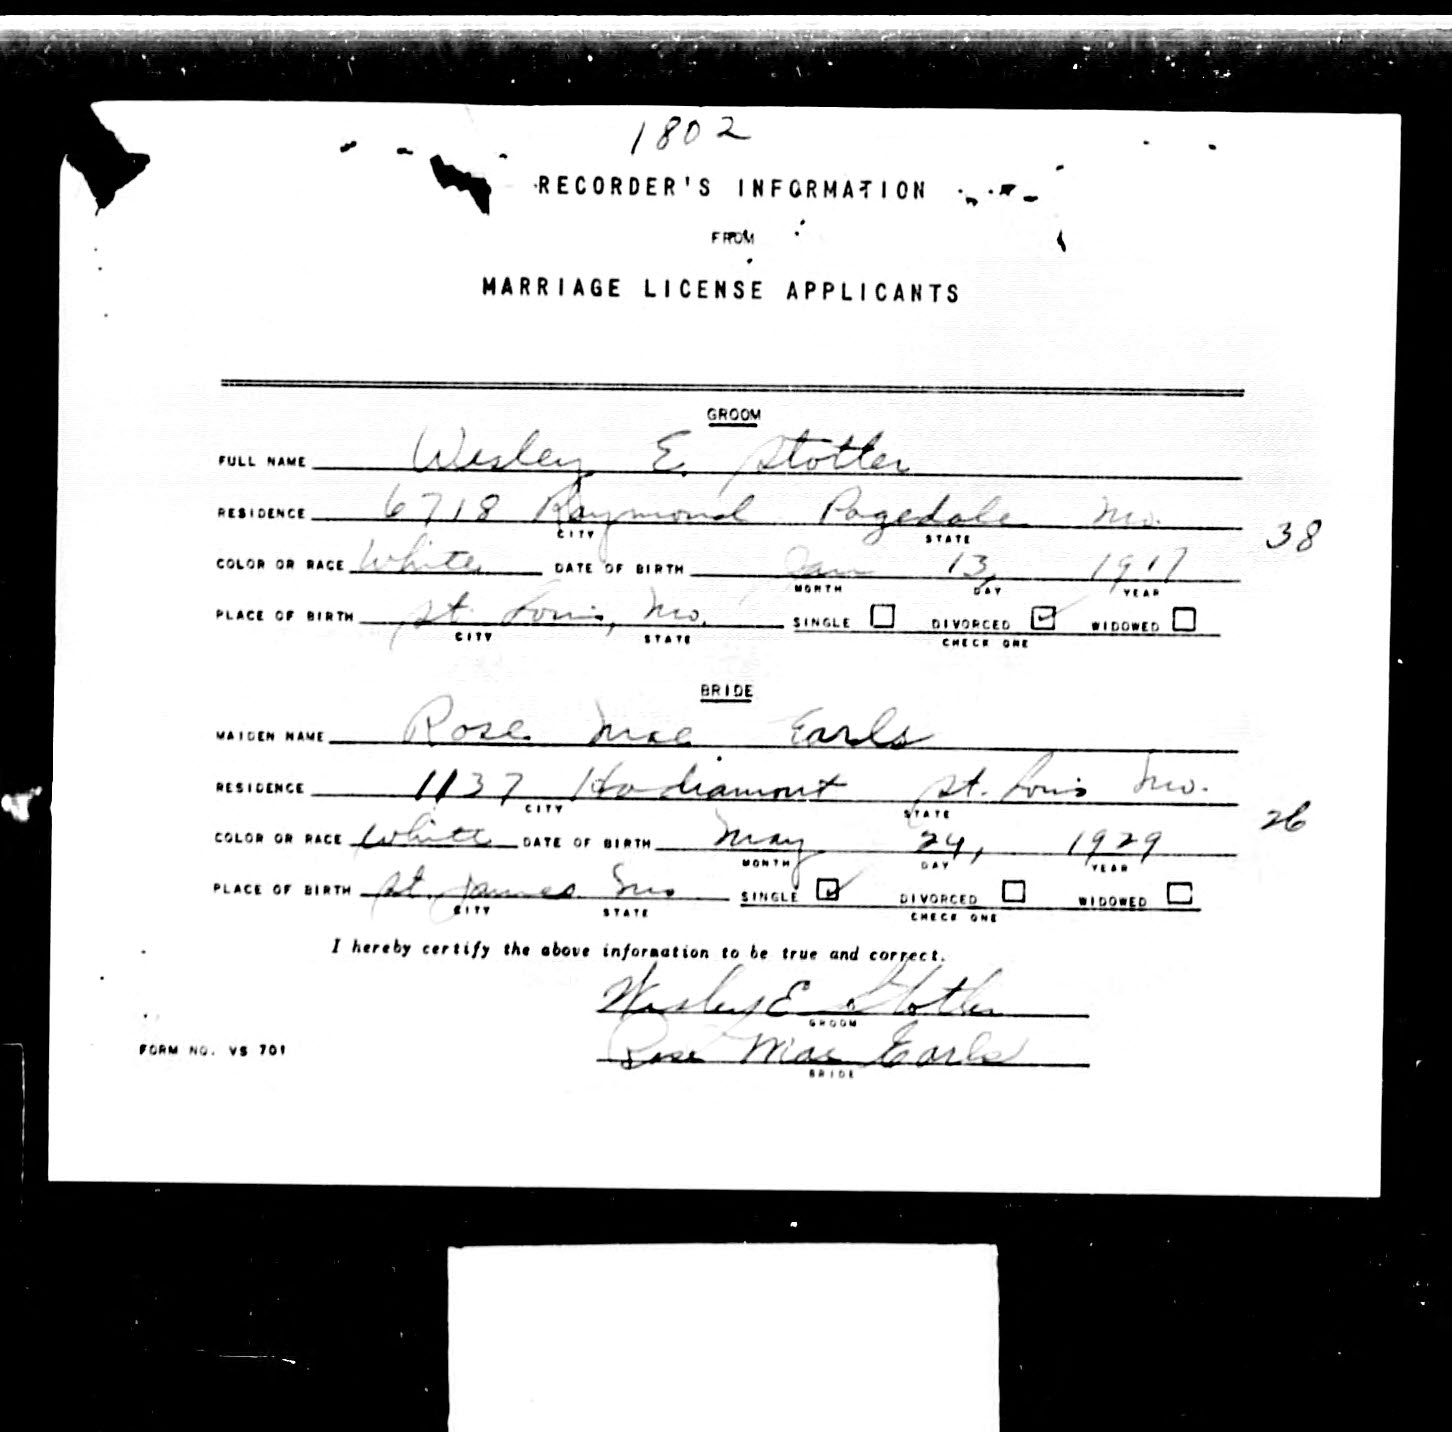 1802
RECORDER'S INFORMATION
FROM
MARRIAGE LICENSE APPLICANTS
GROOM
FULL NAME Wesley E. Stotler
RESIDENCE 6718 Raymond Pagedale Mo.
CITY STATE
38
COLOR OR RACE White DATE OF BIRTH Jan 13, 1917
MONTH DAY YEAR
PLACE OF BIRTH St. Louis, Mo. SINGLE DIVORCED WIDOWED
CITY STATE CHECK ONE
BRIDE
MAIDEN NAME Rose Mae Earls
RESIDENCE 1137 Hodiamont St. Louis Mo.
CITY STATE
26
COLOR OR RACE White DATE OF BIRTH May 24, 1929
MONTH DAY YEAR
PLACE OF BIRTH St. James Mo SINGLE DIVORCED WIDOWED
CITY STATE CHECK ONE
I hereby certify the above information to be true and correct.
Wesley E Stotler
GROOM
FORM NO. VS 701
Rose Mae Earls
BRIDE